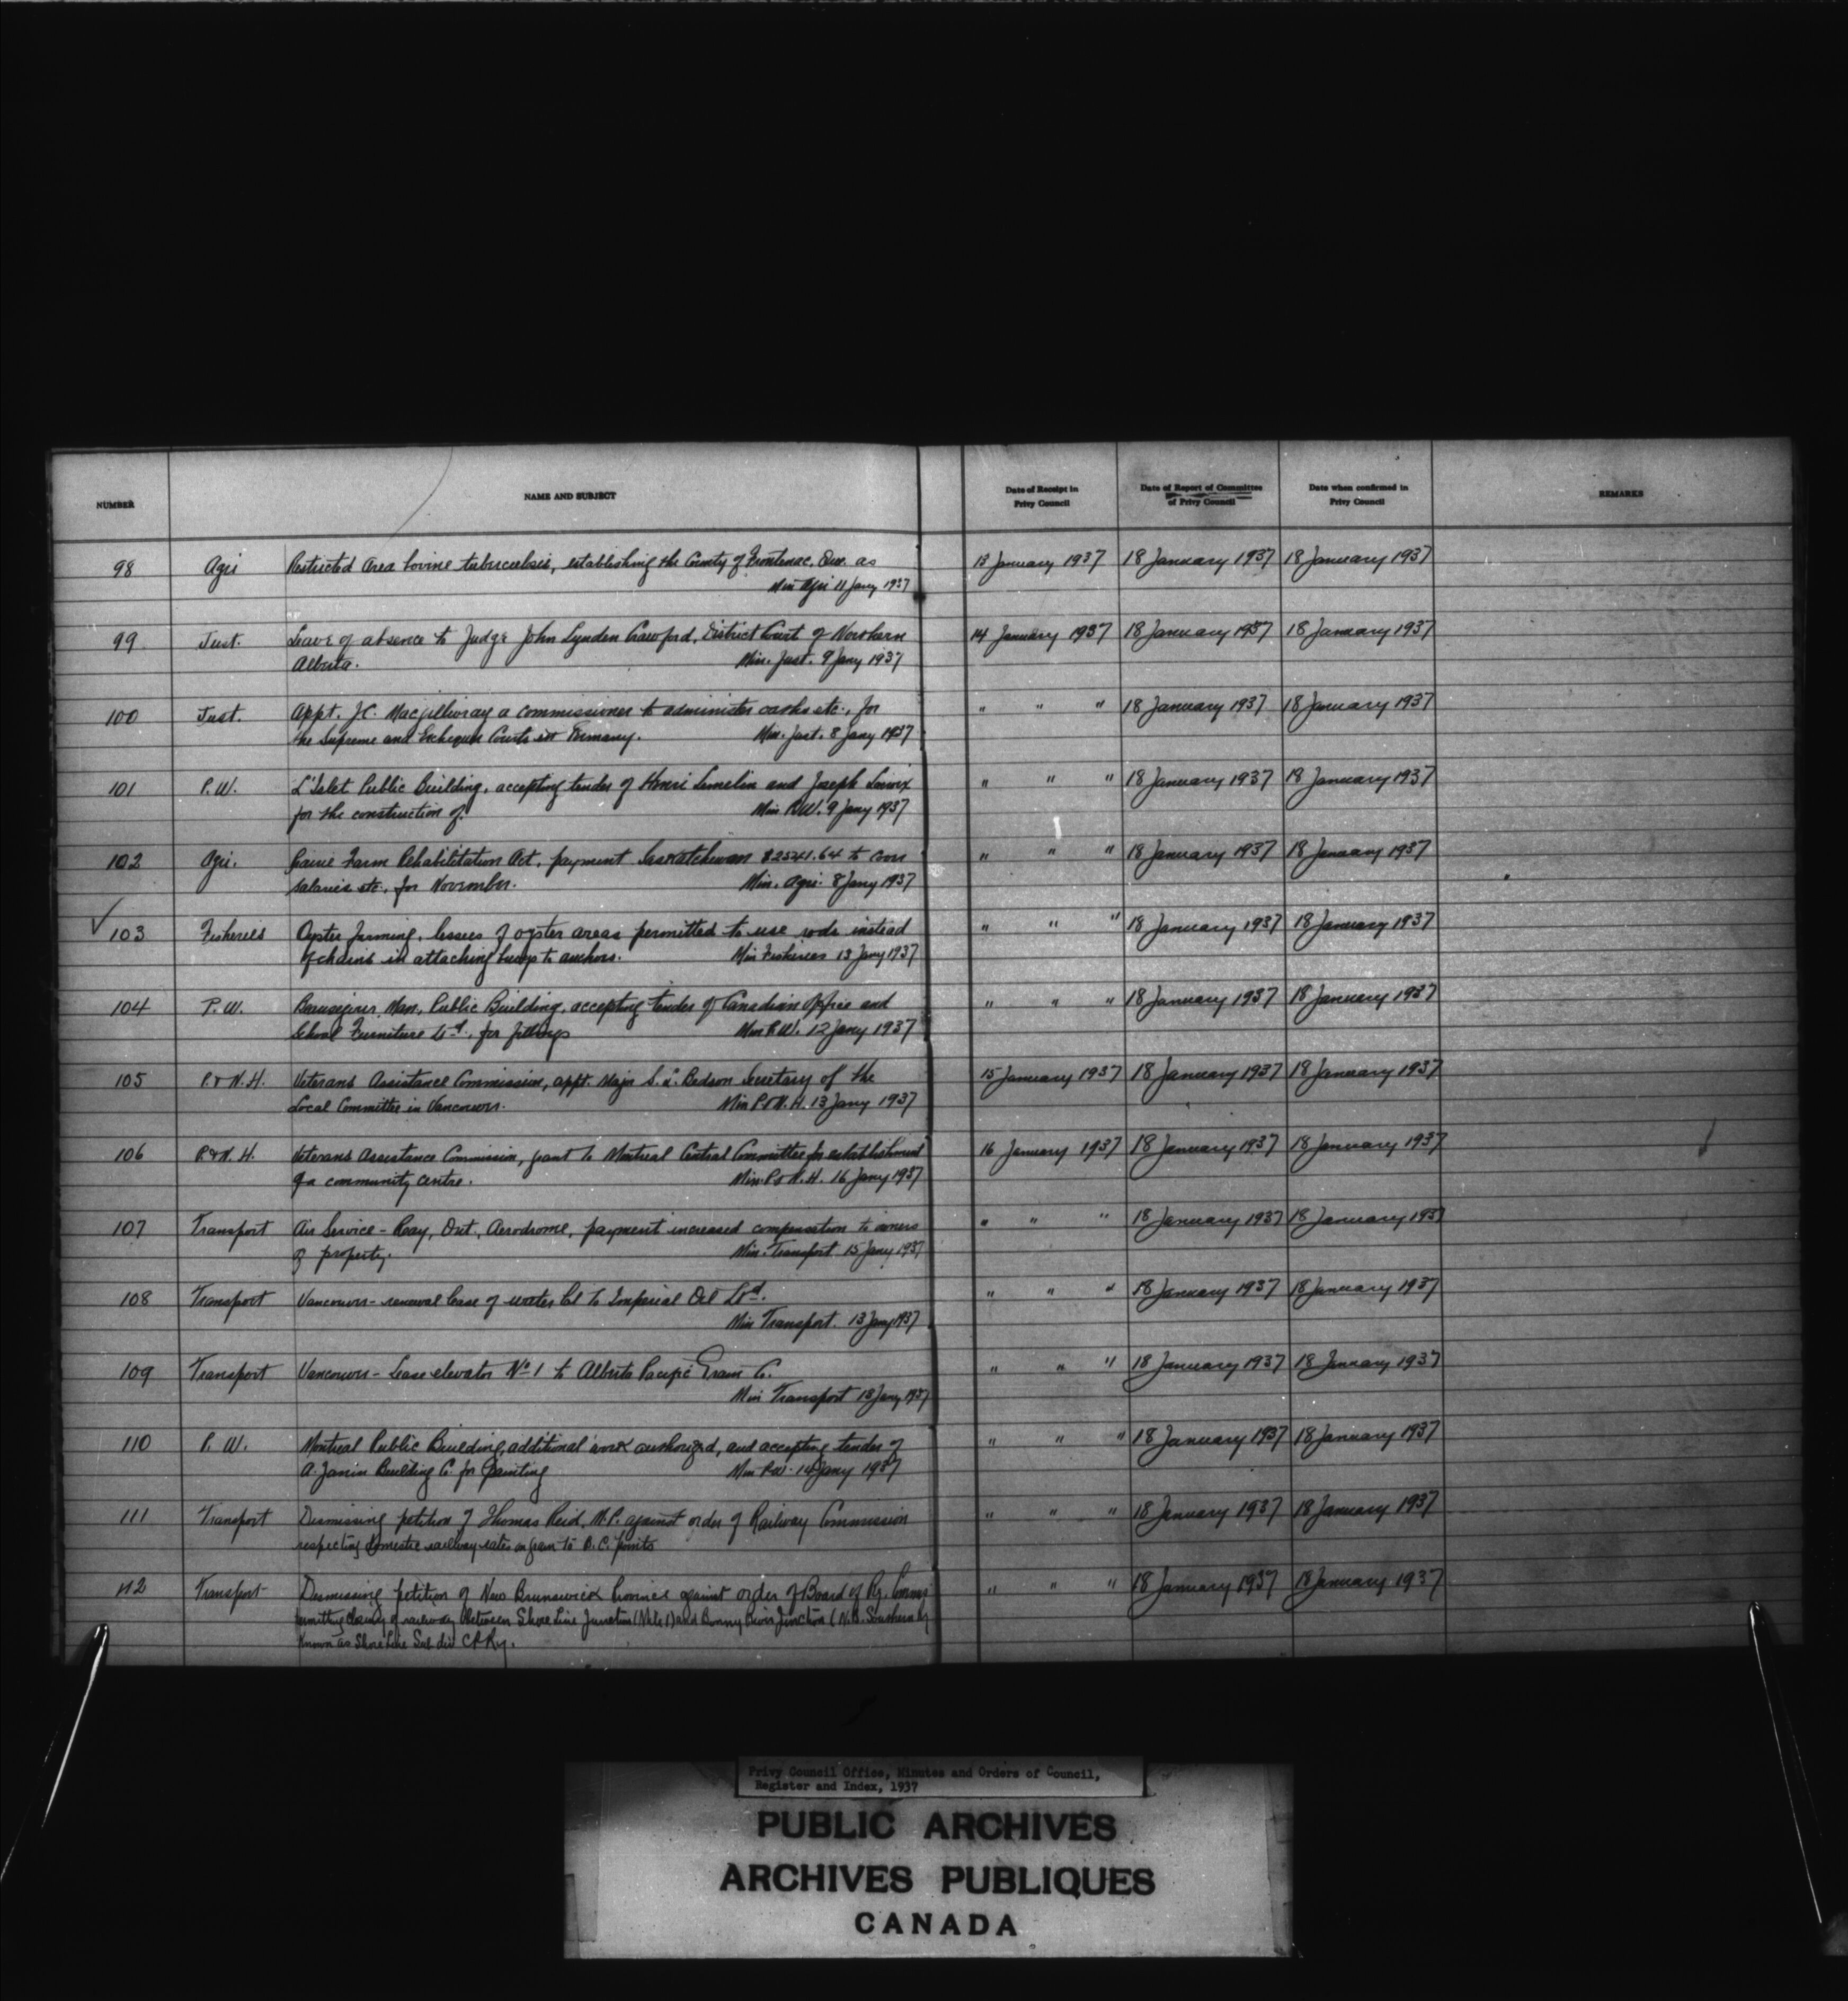 NUMBER
NAME AND SUBJECT
Date of Receipt in
Privy Council
Date of Report of Committee
of Privy Council
Date when confirmed in
Privy Council
REMARKS
98 Agri Restricted Area bovine tuberculosis, establishing the County of Frontenac, Que. as 13 January 1937 18 January 1937 18 January 1937
Min Agri 11 Jany 1937
99 Just. Leave of absence to Judge John Lynden Crawford, District Court of Northern 14 January 1937 18 January 1937 18 January 1937
Alberta. Min. Just. 9 Jany 1937
100 Just. Appt. J.C. Macgillivray a commissioner to administer oaths etc., for " " " 18 January 1937 18 January 1937
the Supreme and Exchequer Courts in Germany. Min. Just. 8 Jany 1937
101 P.W. L'Islet Public Building, accepting tender of Henri Lemelin and Joseph " " " 18 January 1937 18 January 1937
for the construction of. Min P.W. 9 Jany 1937
102 Agri. Prairie Farm Rehabilitation Act, payment Saskatchewan $2541.64 to cover " " " 18 January 1937 18 January 1937
salaries etc. for November. Min. Agri. 8 Jany 1937
103 Fisheries Oyster farming, lessees of oyster areas permitted to use rods instead " " " 18 January 1937 18 January 1937
of chains in attaching buoys to anchors. Min Fisheries 13 Jany 1937
104 P.W. Man. Public Building, accepting tender of Canadian Office and " " " 18 January 1937 18 January 1937
School Furniture Ltd. for fittings Min P.W. 12 Jany 1937
105 P. & N.H. Veterans Assistance Commission, appt. Major Bedson Secretary of the 15 January 1937 18 January 1937 18 January 1937
Local Committee in Vancouver. Min P & N.H. 13 Jany 1937
106 P. & N.H. Veterans Assistance Commission, grant to Montreal Central Committee for establishment 16 January 1937 18 January 1937 18 January 1937
of a community centre. Min. P & N.H. 16 Jany 1937
107 Transport Air Service - Reay, Ont., Aerodrome, payment increased compensation to owners " " " 18 January 1937 18 January 1937
of property. Min. Transport 15 Jany 1937
108 Transport Vancouver - renewal lease of water lot to Imperial Oil Ltd. " " " 18 January 1937 18 January 1937
Min Transport. 13 Jany 1937
109 Transport Vancouver - Lease elevator No 1 to Alberta Pacific Grain Co. " " " 18 January 1937 18 January 1937
Min Transport Jany 1937
110 P.W. Montreal Public Building, additional work authorized, and accepting tender of " " " 18 January 1937 18 January 1937
A. Janin Building Co for painting Min P.W. 14 Jany 1937
111 Transport Dismissing petition of Thomas Reid, M.P. against order of Railway Commission " " " 18 January 1937 18 January 1937
respecting domestic railway rates on grain to B.C. points
112 Transport Dismissing petition of New Brunswick Province against order of Board of Ry. Commrs " " " 18 January 1937 18 January 1937
permitting closing of railway between Shore Line Junction (Mile 1) and Bonny River Junction (N.B. Southern Ry
known as Shore Line Sub div C.P.Ry.
Privy Council Office, Minutes and Orders of Council,
Register and Index, 1937
PUBLIC ARCHIVES
ARCHIVES PUBLIQUES
CANADA